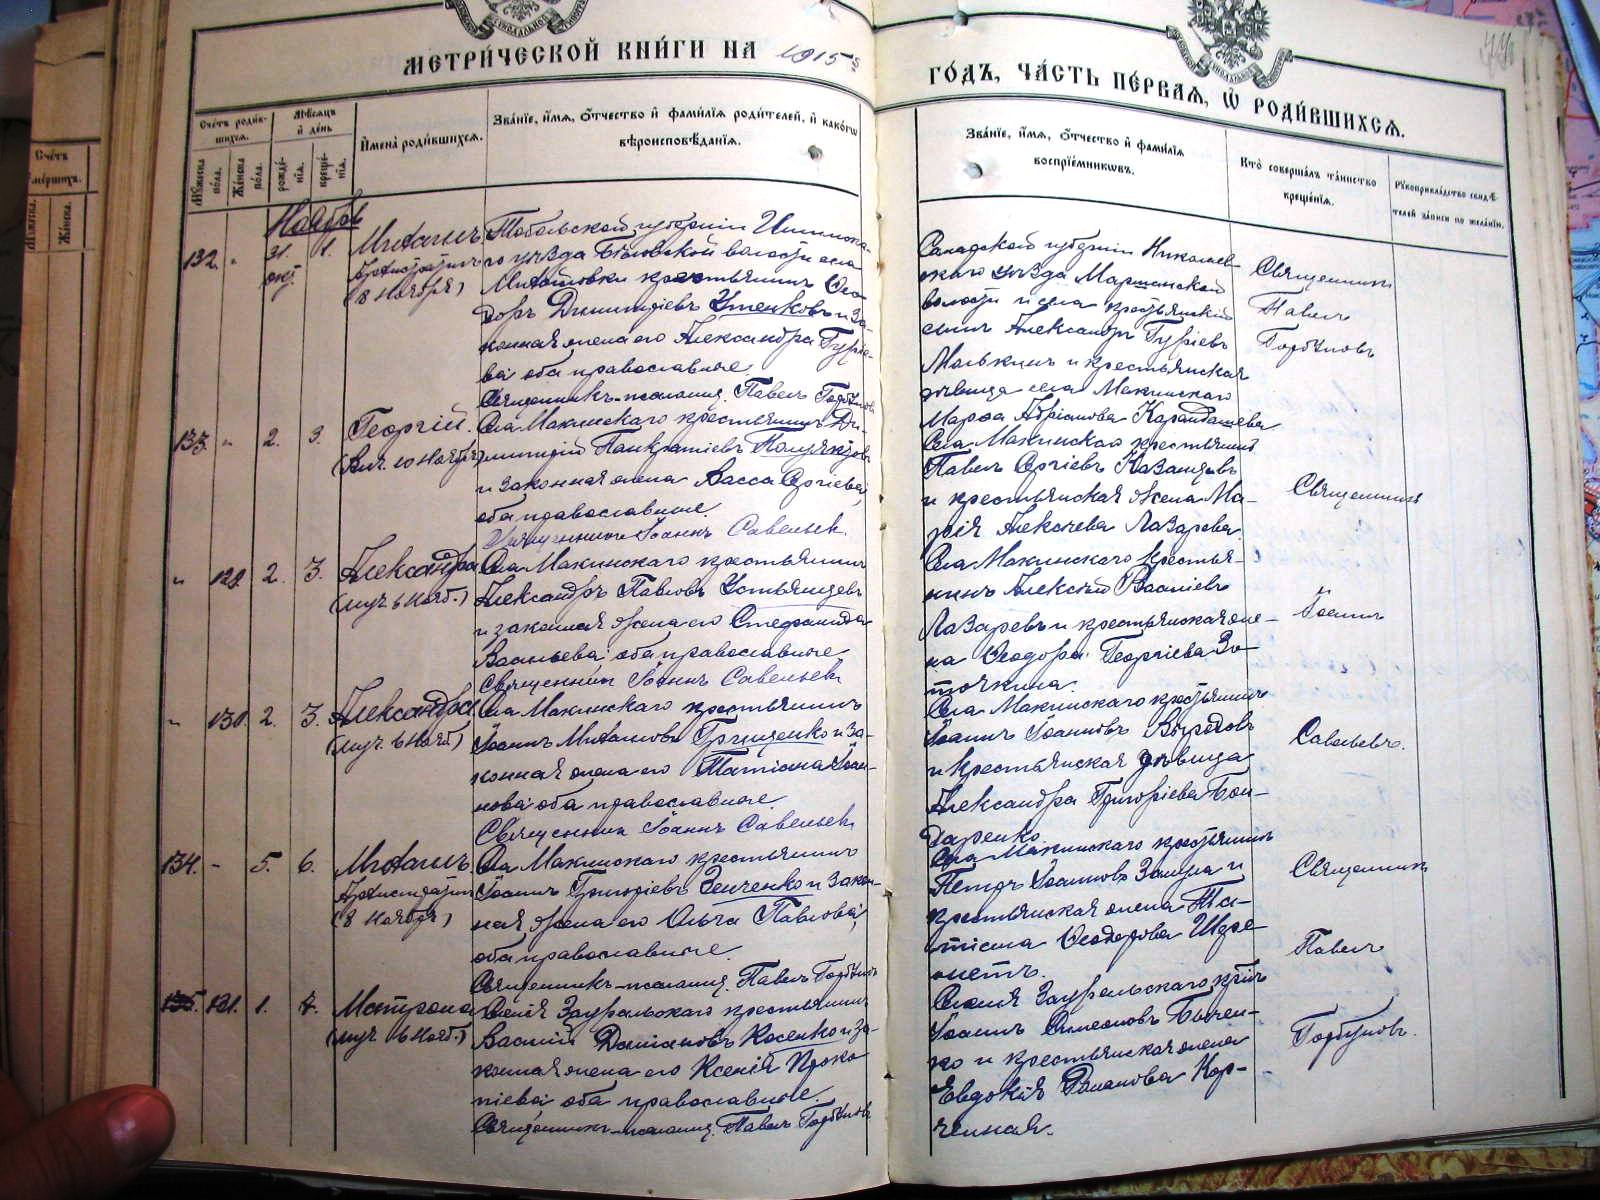 МЕТРИ́ЧЕСКОЙ КНИ́ГИ НА 1915
ГО́ДЪ, ЧА́СТЬ ПЕ́РВАѦ, Ѡ҆ РОДИ́ВШИХСѦ.
Сче́тъ роди́в-
шихсѧ.
Мѣ́сѧцъ
и҆ де́нь
Мꙋ́жеска
по́ла.
Же́нска
по́ла.
рожде́-
нїѧ.
креще́-
нїѧ.
И҆мена̀ роди́вшихсѧ.
Зва́нїе, и҆́мѧ, ѻ҆́тчество и҆ фами́лїѧ роди́телей, и҆ како́гѡ
вѣроисповѣ́данїѧ.
Зва́нїе, и҆́мѧ, ѻ҆́тчество и҆ фами́лїѧ
воспрїе́мникѡвъ.
Кто̀ соверша́лъ та́инство
креще́нїѧ.
Рꙋкоприкла́дство свидѣ́-
телей за́писи по жела́нїю.
Сче́тъ
ᲂу҆ме́ршихъ.
Ноябрь
132. " 31. окт. 1. Михаилъ
Архистратигъ
(8 Ноября)
Тобольской губерніи Ишимска-
го уѣзда волости села
крестьянинъ Ѳео-
доръ Димитріевъ и за-
конная жена его Александра Гурье-
ва оба православные.
Священникъ Павелъ Горбуновъ
Самарской губерніи Николаев-
скаго уѣзда
волости и села крестьянскій
сынъ Александръ Гуріевъ
и крестьянская
дѣвица села Макинскаго
Марѳа Карандашева
Священникъ
Павелъ
Горбуновъ
133. " 2. 3. Георгій.
(Вел. 10 Ноября)
Села Макинскаго крестьянинъ Ди-
митрій Панкратіевъ
и законная жена Васса Сергіева,
оба православные.
Священникъ Іоаннъ Савельевъ
Села Макинскаго крестьянинъ
Павелъ Сергіевъ Казанцевъ
и крестьянская жена Ма-
рія Алексѣева Лазарева
Священникъ
" 129. 2. 3. Александра
(муч. 6 Нояб.)
Села Макинскаго крестьянинъ
Александръ Павловъ Устьянцевъ
и законная жена его Стефанида
Васильева оба православные
Священникъ Іоаннъ Савельевъ
Села Макинскаго крестья-
нинъ Алексѣй Василіевъ
Лазаревъ и крестьянская же-
на Ѳеодора Георгіева Зо-
точкина.
Іоаннъ
" 130. 2. 3. Александра
(муч. 6 Нояб.)
Села Макинскаго крестьянинъ
Іоаннъ Михаиловъ Грищенко и за-
конная жена его Татіана Іоан-
нова оба православные.
Священникъ Іоаннъ Савельевъ
Села Макинскаго крестьянинъ
Іоаннъ Іоанновъ
и крестьянская дѣвица
Александра Григоріева Бон-
даренко
Савельевъ.
134. - 5. 6. Михаилъ
Архистратигъ
(8 Ноября)
Села Макинскаго крестьянинъ
Іоаннъ Григоріевъ Зенченко и закон-
ная жена его Ольга Павлова,
оба православные.
Священникъ Павелъ Горбуновъ
Села Макинскаго крестьянинъ
Петръ Іоанновъ и
крестьянская жена Та-
тіана Ѳеодорова
Священникъ
Павелъ
135. 131. 1. 7. Матрона
(муч. 6 Нояб.)
Селенія Зауральскаго крестьянинъ
Василій Даміановъ Косенко и за-
конная жена его Ксенія Проко-
піева оба православные.
Священникъ Павелъ Горбуновъ
Селенія Зауральскаго кр-нъ
Іоаннъ Симеоновъ
и крестьянская жена
Евдокія Романова Кор-
Горбуновъ.